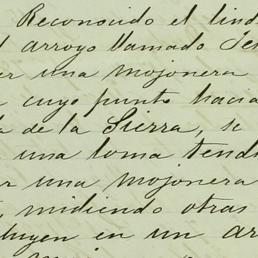 Reconocido el lind
l arroyo llamado Je
er una mojonera
cuyo punto hacia
a de la Sierra, se
una loma tendi
er una mojonera
, midiendo otras
luyen en un ar